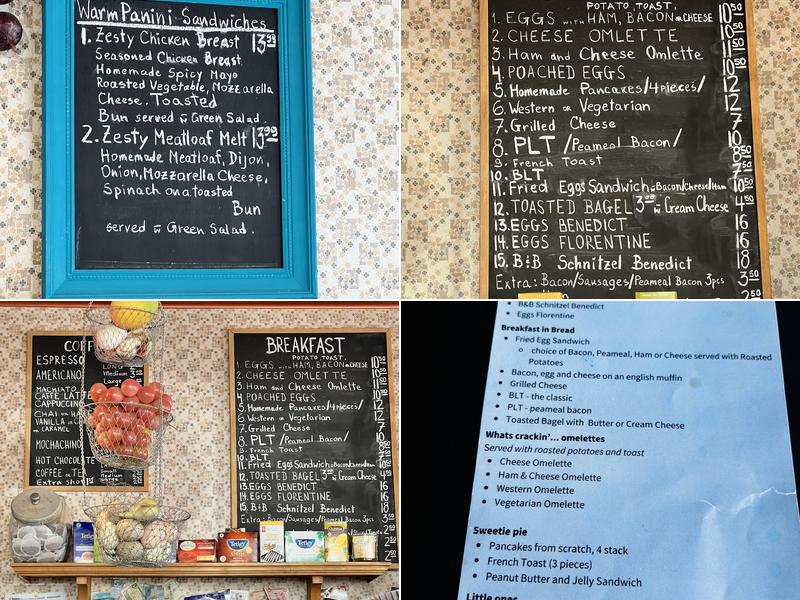 Warm Panini Sandwiches
1. Zesty Chicken Breast 13.99
Seasoned Chicken Breast
Homemade Spicy Mayo
Roasted Vegetable, Mozzarella
Cheese. Toasted
Bun served w Green Salad.
2. Zesty Meatloaf Melt 13.99
Homemade Meatloaf, Dijon,
Onion, Mozzarella Cheese,
Spinach on a toasted
Bun
served w Green Salad.
POTATO, TOAST,
1. EGGS WITH HAM, BACON OR CHEESE 10.50
2. CHEESE OMLETTE
3. Ham and Cheese Omlette
4. POACHED EGGS 10.50
5. Homemade Pancakes/4 pieces/ 12
6. Western OR Vegetarian 12
7. Grilled Cheese 7
8. PLT /Peameal Bacon/ 10
9. French Toast 8.50
10. BLT
11. Fried Eggs Sandwich Bacon/Cheese/Ham 10.50
12. TOASTED BAGEL 3.00 w Cream Cheese 4.50
13. EGGS BENEDICT 16
14. EGGS FLORENTINE 16
15. B&B Schnitzel Benedict 18
Extra: Bacon/Sausages/Peameal Bacon 3pcs 3.50
2.50
COFF
ESPRESSO
AMERICANO
LONG
Medium
Large
MACHIATO
CAFFE LATTE
CAPPUCCINO
CHAI
VANILLA
OR CARAMEL
MOCHACHINO
HOT CHOCOLATE
COFFEE OR TEA
Small
Medium
Extra shot
BREAKFAST
POTATO, TOAST,
1. EGGS WITH HAM, BACON OR CHEESE 10.50
2. CHEESE OMLETTE
3. Ham and Cheese Omlette
4. POACHED EGGS 10.50
5. Homemade Pancakes/4 pieces/ 12
6. Western OR Vegetarian 12
7. Grilled Cheese 7
8. PLT /Peameal Bacon/ 10
9. French Toast 8.50
10. BLT
11. Fried Eggs Sandwich Bacon/Cheese/Ham 10.50
12. TOASTED BAGEL 3.00 w Cream Cheese 4.50
13. EGGS BENEDICT 16
14. EGGS FLORENTINE 16
15. B&B Schnitzel Benedict 18
Extra: Bacon/Sausages/Peameal Bacon 3pcs 3.50
Tetley
Tetley
Tetley
• B&B Schnitzel Benedict
• Eggs Florentine
Breakfast in Bread
• Fried Egg Sandwich
○ choice of Bacon, Peameal, Ham or Cheese served with Roasted
Potatoes
• Bacon, egg and cheese on an english muffin
• Grilled Cheese
• BLT - the classic
• PLT - peameal bacon
• Toasted Bagel with Butter or Cream Cheese
Whats crackin'... omelettes
Served with roasted potatoes and toast
• Cheese Omelette
• Ham & Cheese Omelette
• Western Omelette
• Vegetarian Omelette
Sweetie pie
• Pancakes from scratch, 4 stack
• French Toast (3 pieces)
• Peanut Butter and Jelly Sandwich
Little ones